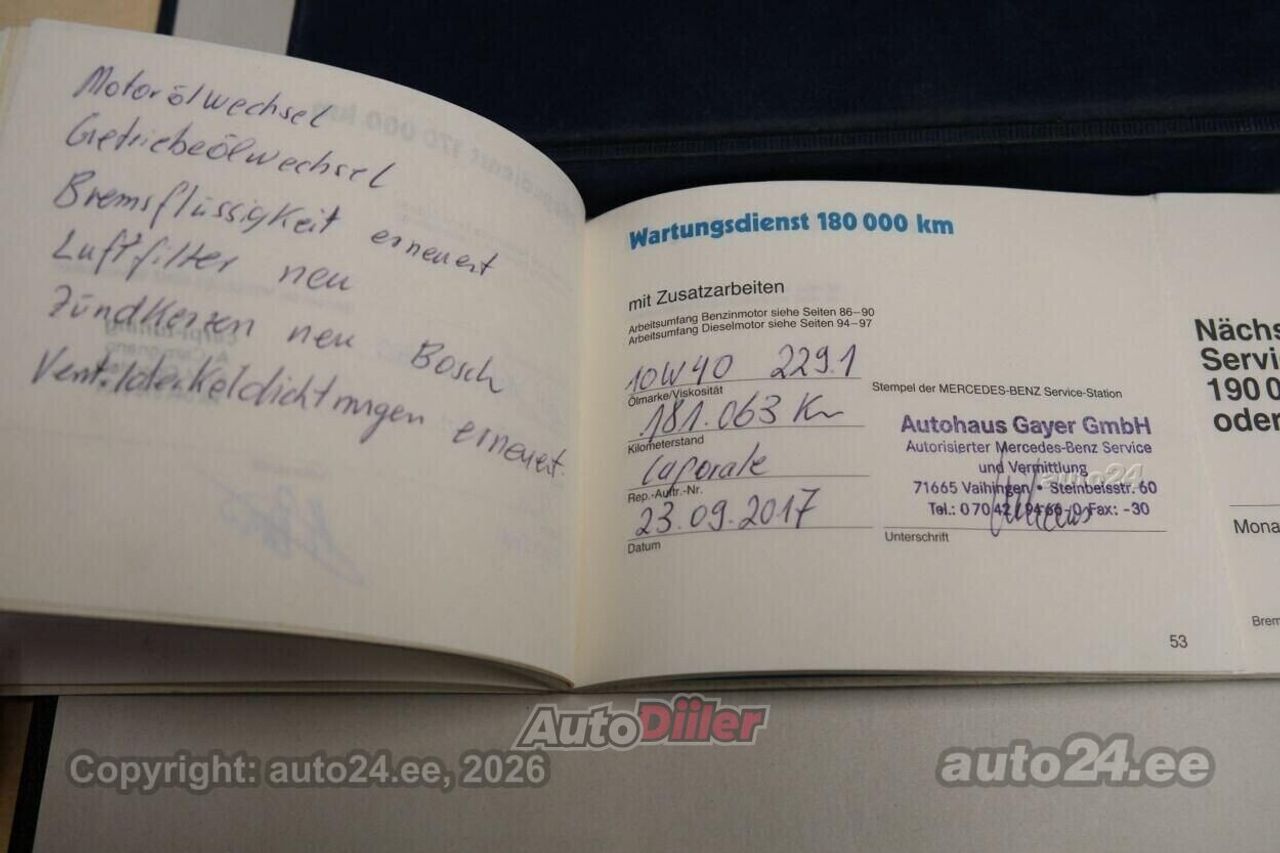 Motorölwechsel
Getriebeölwechsel
Bremsflüssigkeit erneuert
Luftfilter neu
Zündkerzen neu Bosch
Ventildeckeldichtungen erneuert.
Wartungsdienst 180 000 km
mit Zusatzarbeiten
Arbeitsumfang Benzinmotor siehe Seiten 86–90
Arbeitsumfang Dieselmotor siehe Seiten 94–97
10W40 229.1
Ölmarke/Viskosität
181.063 Km
Kilometerstand
Rep.-Auftr.-Nr.
23.09.2017
Datum
Stempel der MERCEDES-BENZ Service-Station
Autohaus Gayer GmbH
Autorisierter Mercedes-Benz Service
und Vermittlung
71665 Vaihingen • Steinbeisstr. 60
Tel.: 0 70 42 / 94 66-0 Fax: -30
Unterschrift
53
Nächs
Servi
190 0
oder
Mona
Brem
auto24
AutoDiiler
Copyright: auto24.ee, 2026
auto24.ee